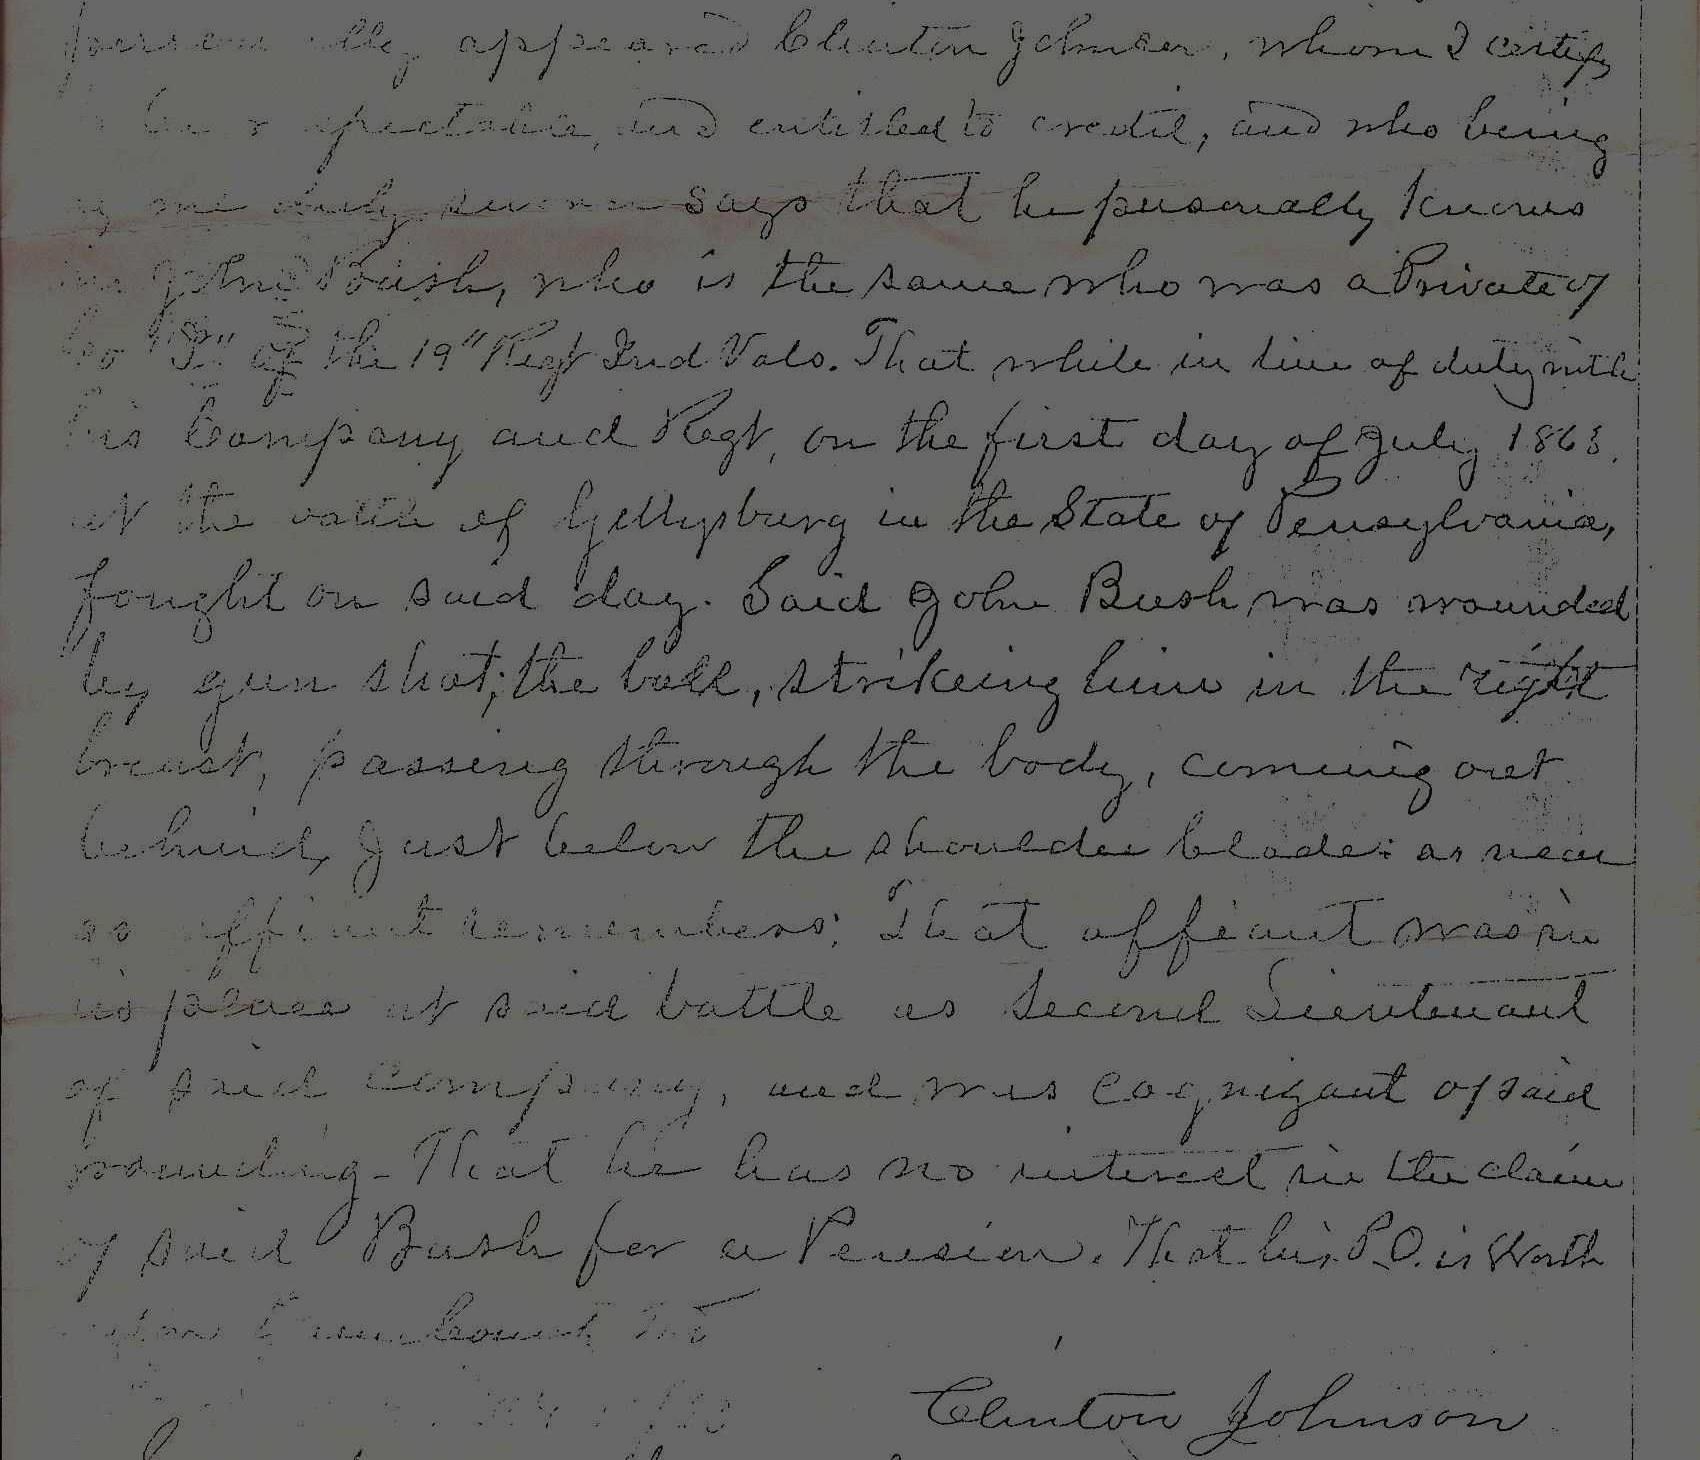 appeared Clinton Johnson, whom I certify
and entitled to credit, and who being
me duly sworn says that he personally knows
John Bush, who is the same who was a Private of
of the 19" Regt Ind Vols. That while in line of duty with
his Company and Regt, on the first day of July 1863.
at the battle of Gettysburg in the State of Pensylvania,
fought on said day. Said John Bush was wounded
by gun shot; the ball, strikeing him in the right
breast, passing through the body, coming out
behind, Just below the shoulder blade: as near
as affiant remembers; That affiant was in
his place at said battle as Second Lieutenant
of said Company, and was cognizant of said
wounding - That he has no interest in the claim
of said Bush for a Pension. That his P.O. is Worth
Clinton Johnson